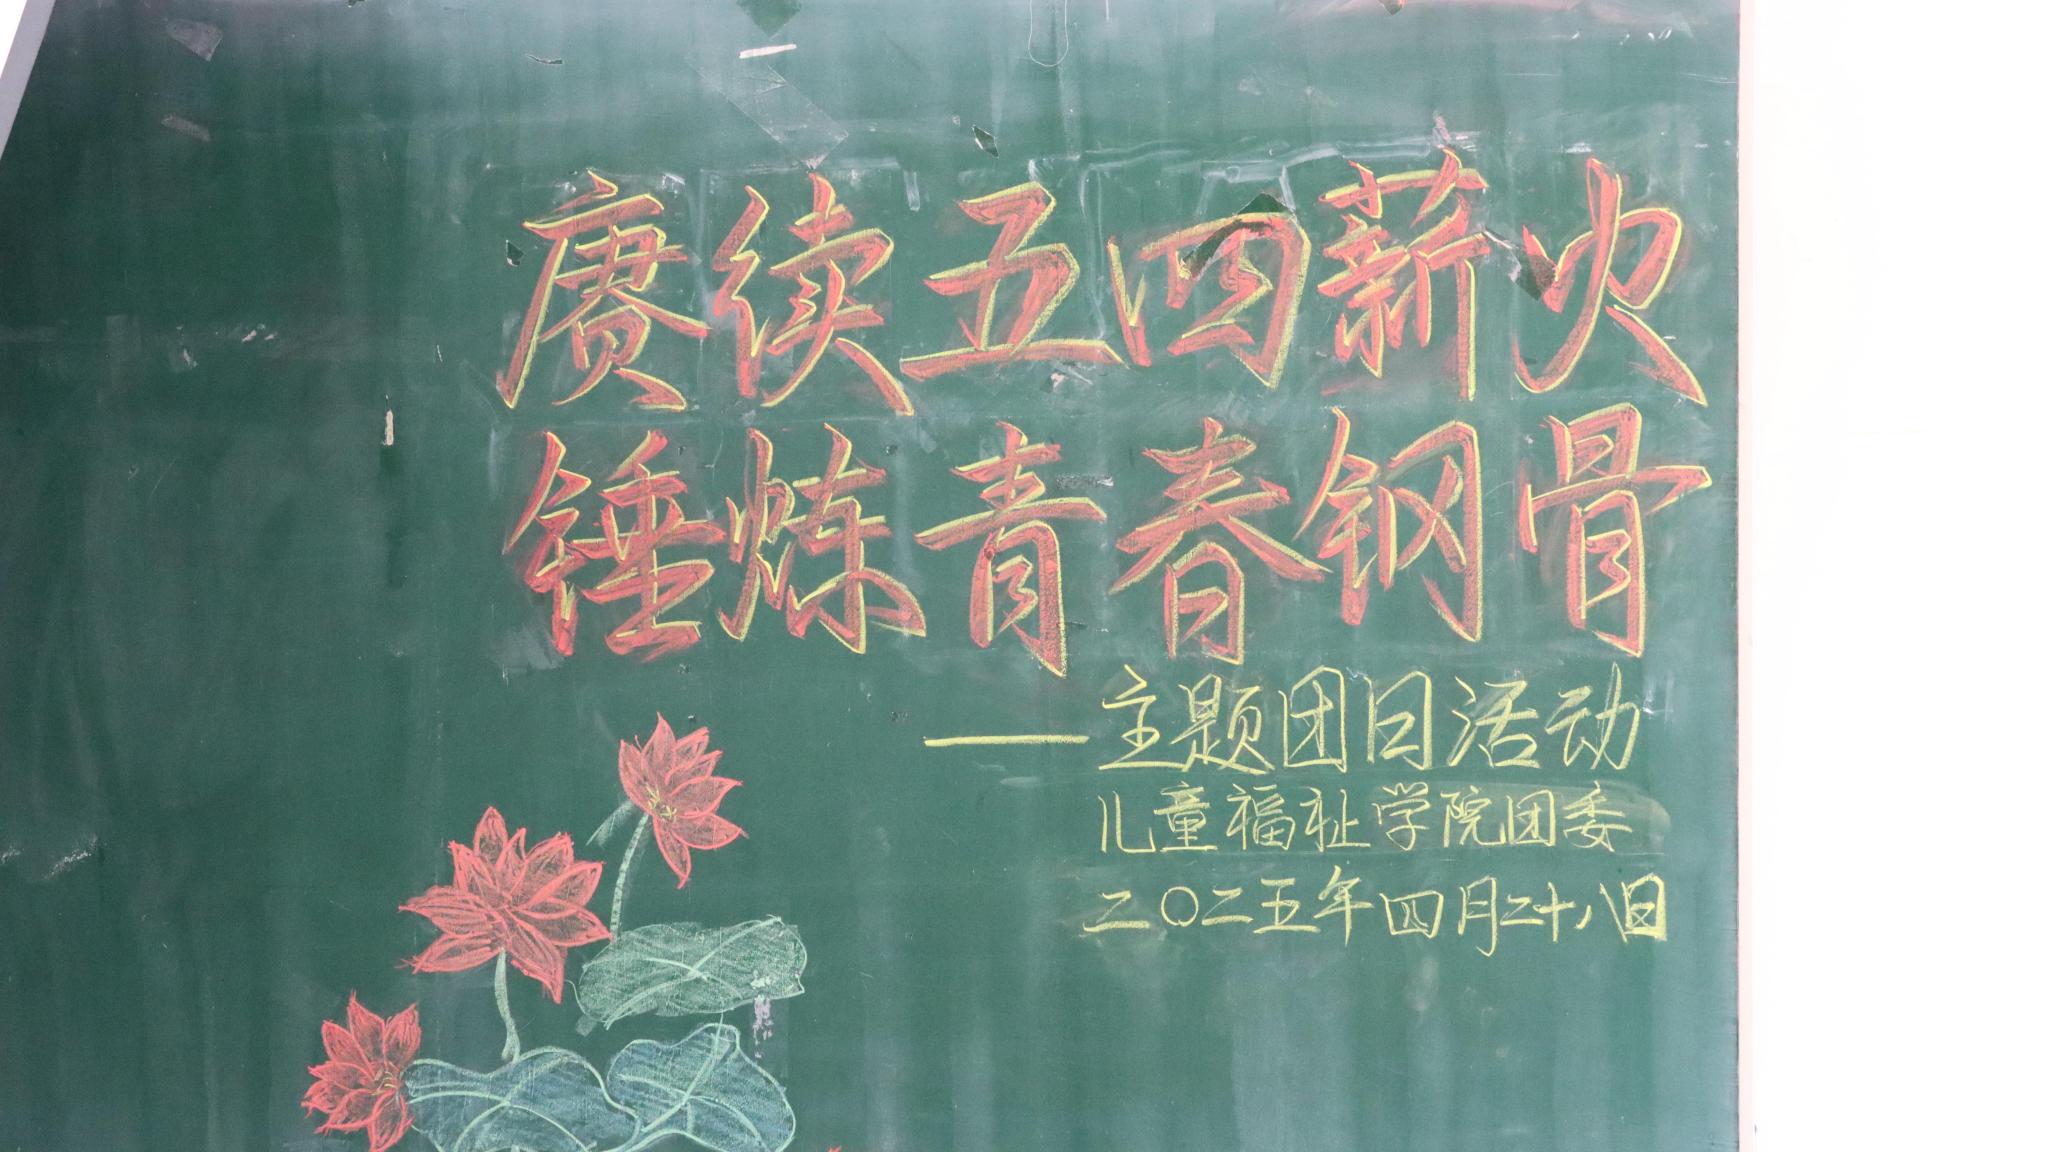 赓续五四薪火
锤炼青春钢骨
——主题团日活动
儿童福祉学院团委
二〇二五年四月二十八日